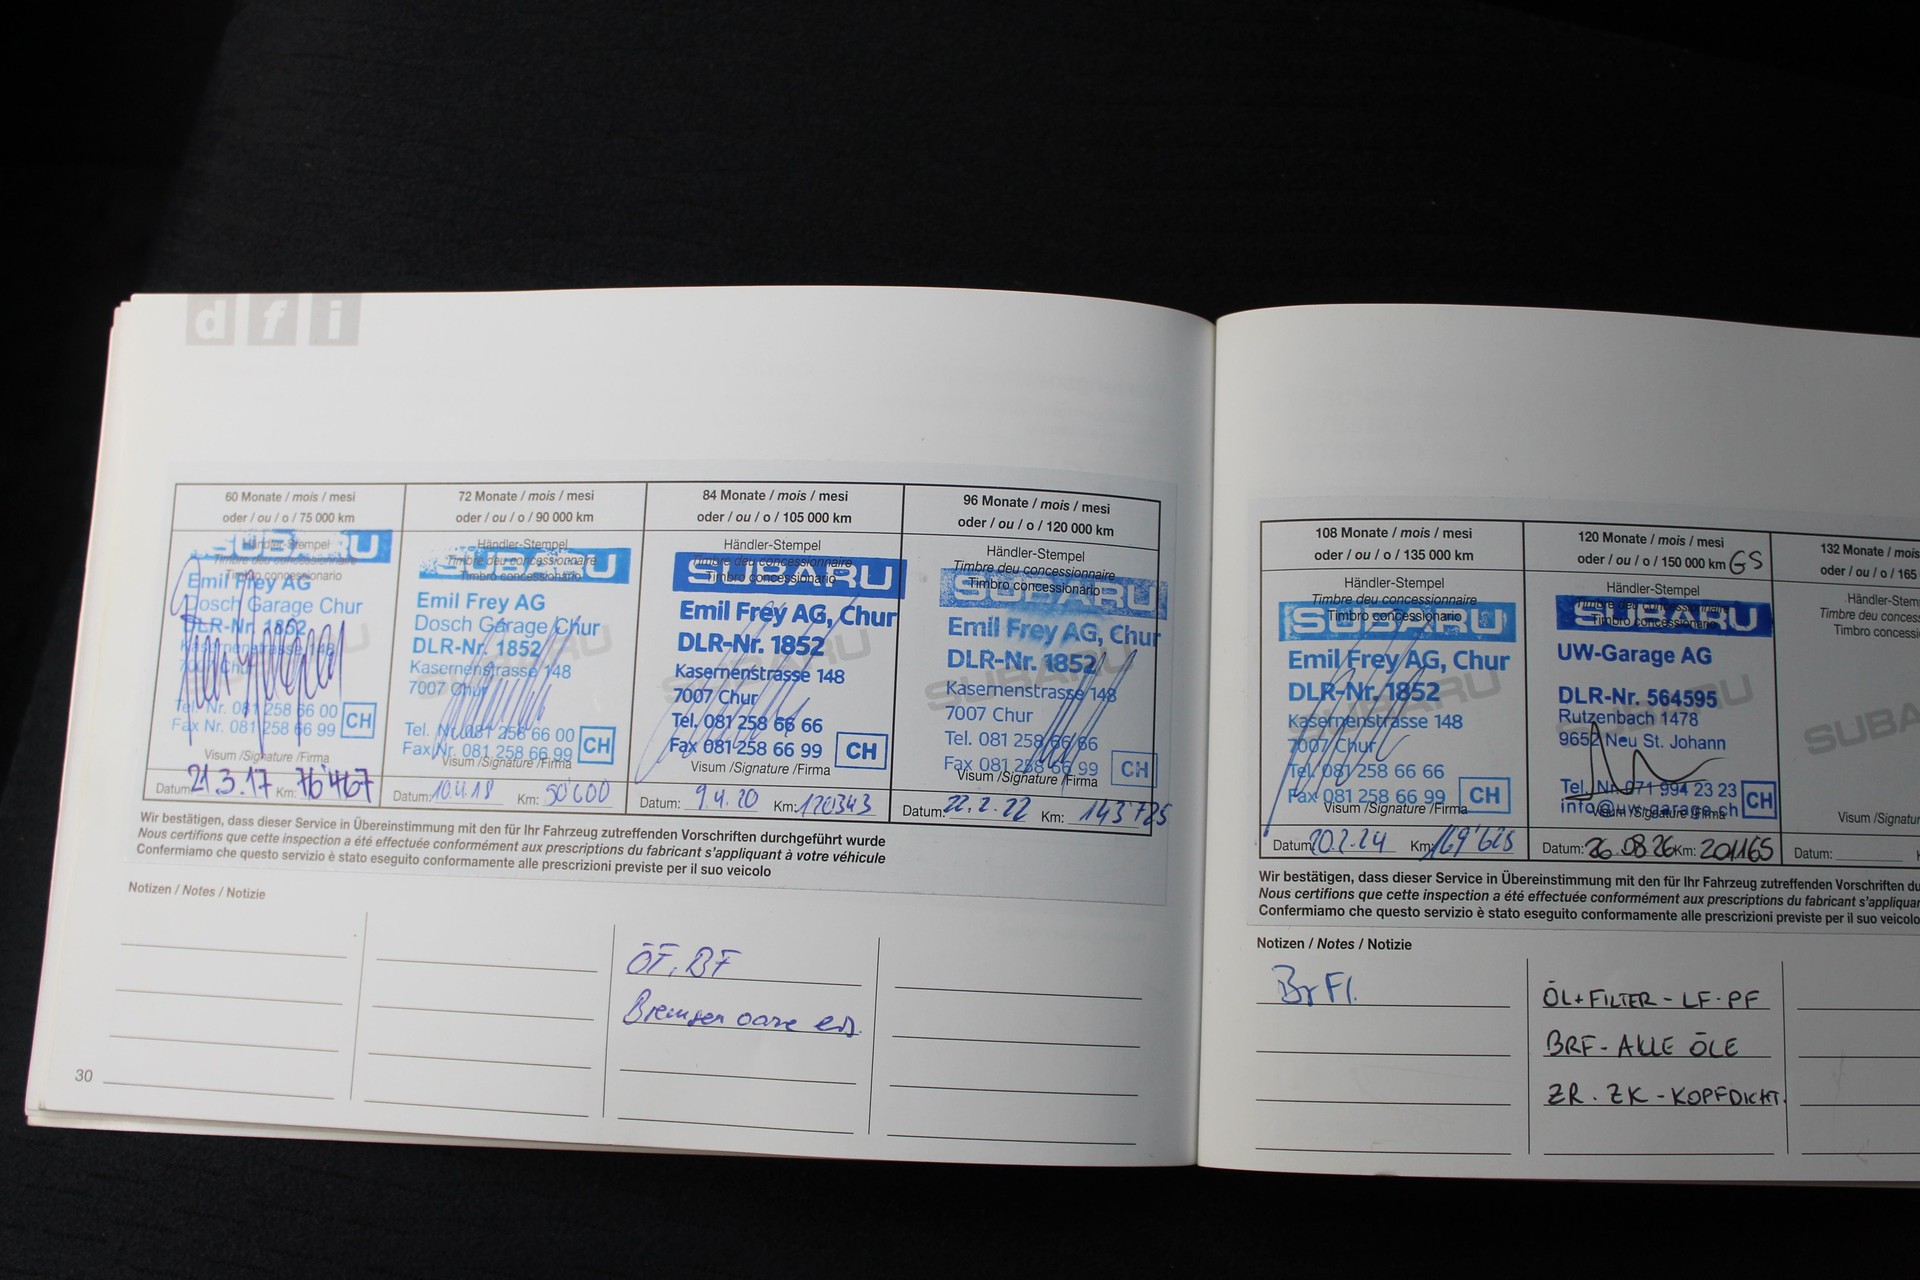 dfi
60 Monate / mois / mesi
oder / ou / o / 75 000 km
Händler-Stempel
Timbre deu concessionnaire
Timbro concessionario
SUBARU
Emil Frey AG
Dosch Garage Chur
DLR-Nr. 1852
Kasernenstrasse 148
7007 Chur
Tel. Nr. 081 258 66 00
Fax Nr. 081 258 66 99
CH
Visum /Signature /Firma
Datum: 21.3.17 Km: 76'467
72 Monate / mois / mesi
oder / ou / o / 90 000 km
Händler-Stempel
Timbre deu concessionnaire
Timbro concessionario
SUBARU
Emil Frey AG
Dosch Garage Chur
DLR-Nr. 1852
Kasernenstrasse 148
7007 Chur
Tel. Nr. 081 258 66 00
Fax Nr. 081 258 66 99
CH
Visum /Signature /Firma
Datum: 10.4.18 Km:
84 Monate / mois / mesi
oder / ou / o / 105 000 km
Händler-Stempel
Timbre deu concessionnaire
Timbro concessionario
SUBARU
Emil Frey AG, Chur
DLR-Nr. 1852
Kasernenstrasse 148
7007 Chur
Tel. 081 258 66 66
Fax 081 258 66 99
CH
Visum /Signature /Firma
Datum: 9.4.20 Km: 120343
96 Monate / mois / mesi
oder / ou / o / 120 000 km
Händler-Stempel
Timbre deu concessionnaire
Timbro concessionario
SUBARU
Emil Frey AG, Chur
DLR-Nr. 1852
Kasernenstrasse 148
7007 Chur
Tel. 081 258 66 66
Fax 081 258 66 99
CH
Visum /Signature /Firma
Datum: 22.2.22 Km: 143'725
Wir bestätigen, dass dieser Service in Übereinstimmung mit den für Ihr Fahrzeug zutreffenden Vorschriften durchgeführt wurde
Nous certifions que cette inspection a été effectuée conformément aux prescriptions du fabricant s'appliquant à votre véhicule
Confermiamo che questo servizio è stato eseguito conformamente alle prescrizioni previste per il suo veicolo
Notizen / Notes / Notizie
ÖF, BF
Bremsen
30
108 Monate / mois / mesi
oder / ou / o / 135 000 km
Händler-Stempel
Timbre deu concessionnaire
Timbro concessionario
SUBARU
Emil Frey AG, Chur
DLR-Nr. 1852
Kasernenstrasse 148
7007 Chur
Tel. 081 258 66 66
Fax 081 258 66 99
CH
Visum /Signature /Firma
Datum: 20.2.24 Km: 169'625
120 Monate / mois / mesi
oder / ou / o / 150 000 km GS
Händler-Stempel
Timbre deu concessionnaire
Timbro concessionario
SUBARU
UW-Garage AG
DLR-Nr. 564595
Rutzenbach 1478
9652 Neu St. Johann
Tel. Nr. 071 994 23 23
info@uw-garage.ch
CH
Visum /Signature /Firma
Datum: 26.08.26 Km: 201165
132 Monate / mois
oder / ou / o / 165
Händler-Stem
Timbre deu conces
Timbro concessi
SUBA
Visum /Signatur
Datum:
Wir bestätigen, dass dieser Service in Übereinstimmung mit den für Ihr Fahrzeug zutreffenden Vorschriften du
Nous certifions que cette inspection a été effectuée conformément aux prescriptions du fabricant s'appliquan
Confermiamo che questo servizio è stato eseguito conformamente alle prescrizioni previste per il suo veicolo
Notizen / Notes / Notizie
BrFl.
ÖL+FILTER - LF - PF
BRF - ALLE ÖLE
ZR. ZK - KOPFDICHT.